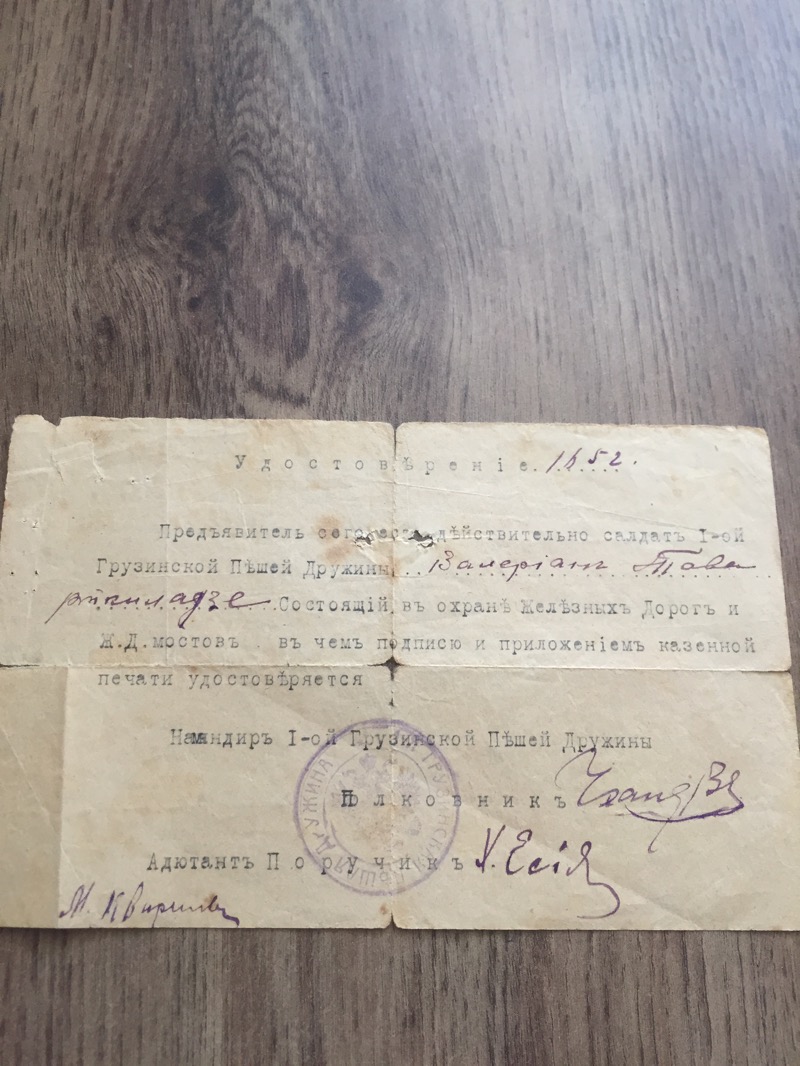 Удостовѣреніе. 1652.
Предъявитель сего есть дѣйствительно салдатъ І-ой
Грузинской Пѣшей Дружины Валеріанъ Тава
рткиладзе Состоящій въ охранѣ Желѣзныхъ Дорогъ и
Ж.Д.мостов въ чемъ подписю и приложеніемъ казенной
печати удостовѣряется
І-ой Грузинской Пѣшей Дружины
Полковникъ
Адютантъ Поручикъ
М.
ГРУЗИНСКАЯ ПѢШАЯ ДРУЖИНА